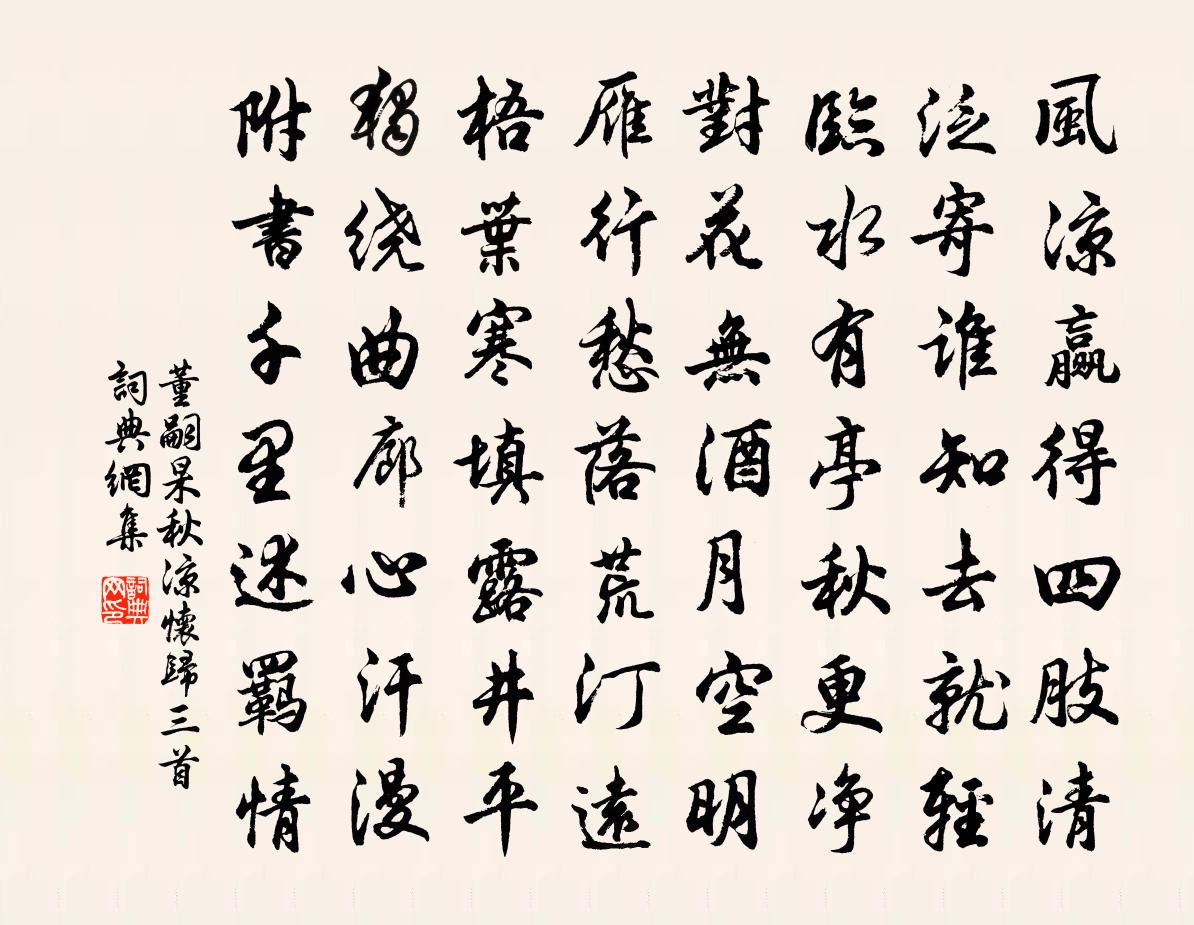 風涼贏得四肢清
泛寄誰知去就輕
臨水有亭秋更净
對花無酒月空明
雁行愁落荒汀遠
梧葉寒填露井平
獨绕曲廊心汗漫
附書千里迷羈情
董嗣杲秋涼懷歸三首
詞典網集
詞典网印